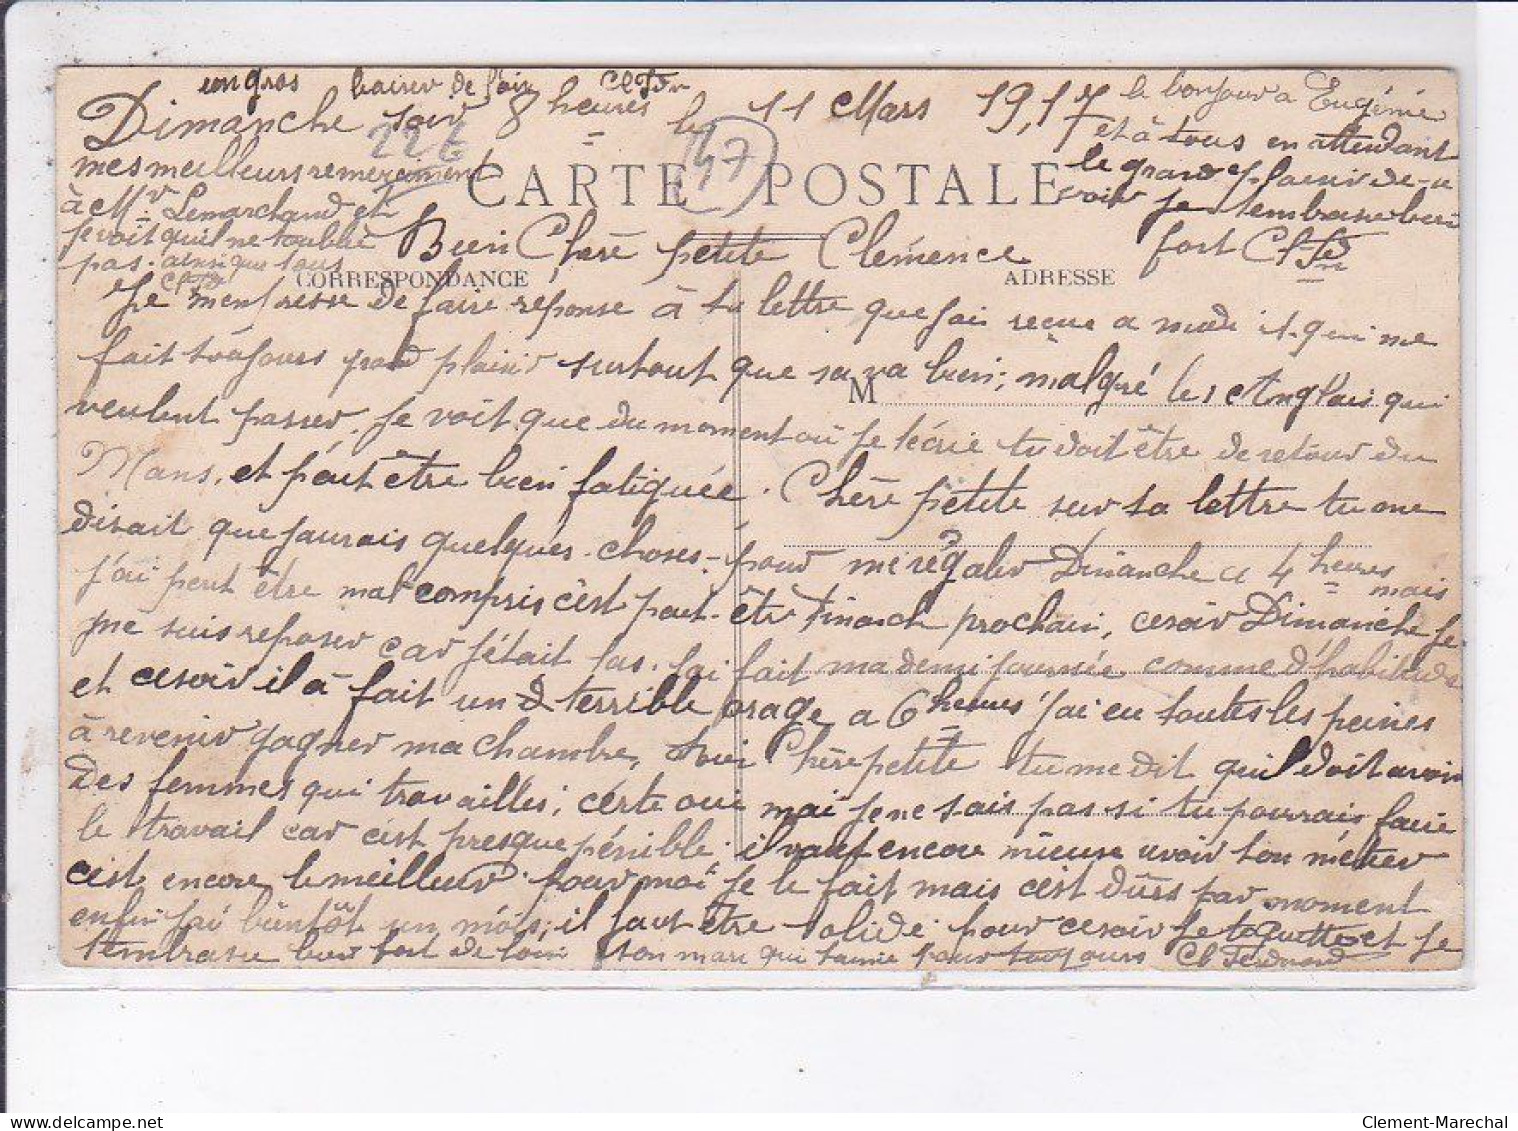 un gros baiser de loin Cl Fdr
Dimanche soir 8 heures le 11 Mars 1917
226
47
le bonjour a Eugénie
et à tous en attendant
le grand plaisir de te
voir je tembrasse bien
fort Cl Fd
mes meilleurs remerciment
à Mr Lemarchand et
je voit quil ne toublie
pas. ainsi que tous
Cl Fd
CARTE POSTALE
Bien Chère petite Clémence
CORRESPONDANCE
ADRESSE
Je menpresse de faire reponse à ta lettre que jai recue a midi et qui me
fait toujours grand plaisir surtout que sa va bien, malgré les Anglais qui
M
veulent passer. je voit que du moment où je técrie tu doit être de retour du
Mans, et peut être bien fatiguée. Chère petite sur ta lettre tu me
disait que jaurais quelques choses pour me régaler Dimanche a 4 heures mais
j'ai peut être mal compris c'est peut-être Dimanch prochain, cesoir Dimanche je
me suis reposer car j'était las. jai fait ma demi journée comme d'habitude
et cesoir il à fait un terrible orage a 6 heures j'ai eu toutes les peines
à revenir gagner ma chambre, Oui Chère petite tu me dit quil doit avoir
des femmes qui travailles; certe oui mai je ne sais pas si tu pourrais faire
le travail car c'est presque pénible, il vaut encore mieux avoir ton métier
cest encore le meilleur. pour moi je le fait mais c'est dûrs par moment
enfin jai bientôt un mois, il faut être solide pour cesoir je te quitte et je
tembrasse bien fort de loin ton mari qui taime pour toujours Cl Ferdinand
Clement-Marechal